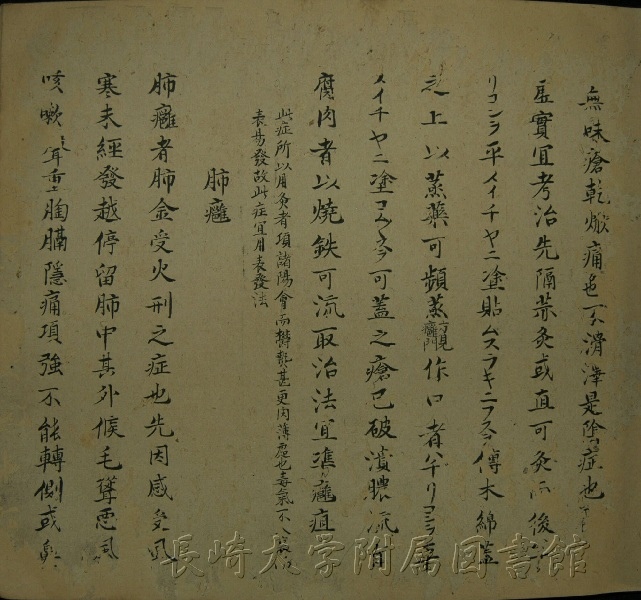 無味瘡乾燥痛色不滑澤是陰症也
虛實宜考治先隔蒜灸或直可灸而後
リコンラ平メイチヤニ塗貼ムスラキニフステ傅木綿蓋
之上以蒸藥可頻蒸方見癰門作口者ハヲリコンラ蓋
メイチヤニ塗可蓋之瘡已破潰膿流有
腐肉者以燒鉄可流取治法宜準癰疽
此症所以用灸者項諸陽會而欝熱甚更肉薄處也毒氣不
表易發故此症宜用表發法
肺癰
肺癰者肺金受火刑之症也先因感受風
寒未經發越停留肺中其外候毛聳惡風
咳嗽胸膈隱痛項強不能轉側或
長崎大学附属図書館